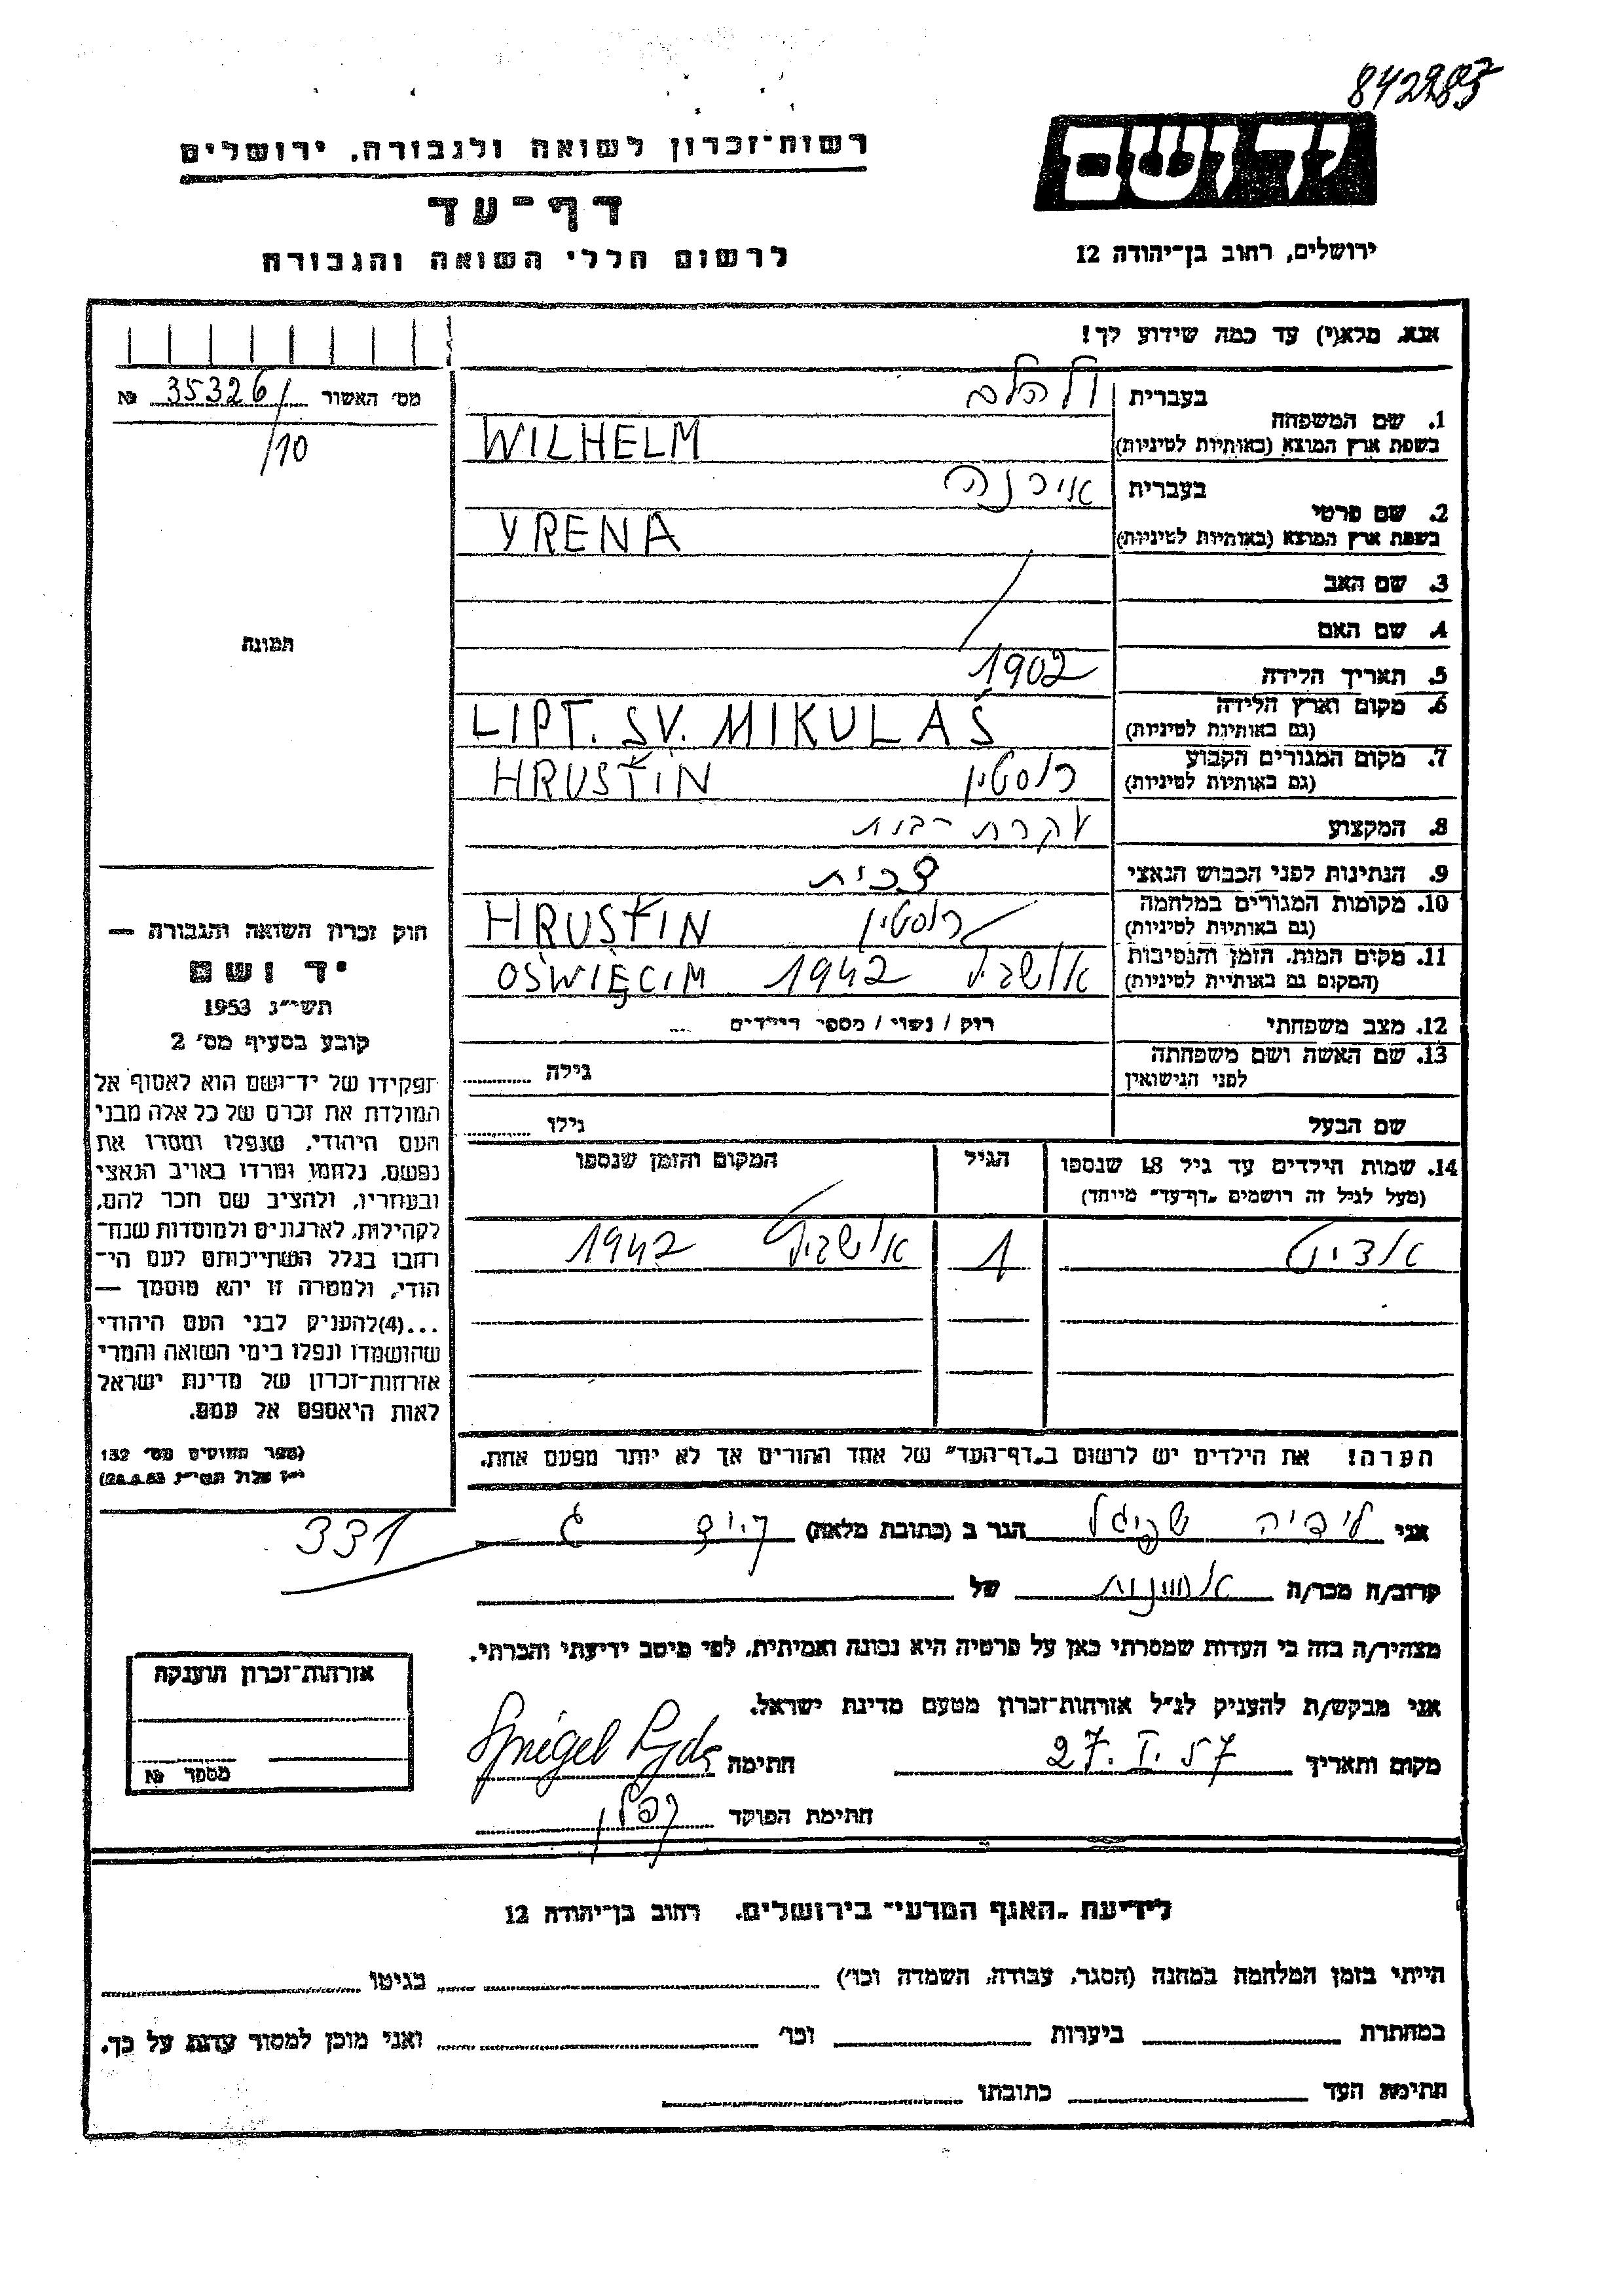 842983
יד ושם
ירושלים, רחוב בן־יהודה 12
רשות־זכרון לשואה ולגבורה, ירושלים
דף־עד
לרשום חללי השואה והגבורה
אנא, מלא(י) עד כמה שידוע לך!
מס׳ האשור 35326/ №
/10
תמונה
1. שם המשפחה
בעברית וילהלם
בשפת ארץ המוצא (באותיות לטיניות) WILHELM
2. שם פרטי
בעברית אירנה
בשפת ארץ המוצא (באותיות לטיניות) YRENA
3. שם האב
4. שם האם
5. תאריך הלידה 1902
6. מקום וארץ הלידה
(גם באותיות לטיניות) LIPT. SV. MIKULAŠ
7. מקום המגורים הקבוע
(גם באותיות לטיניות) רוסטין HRUSTIN
8. המקצוע עקרת בית
9. הנתינות לפני הכבוש הנאצי צכית
10. מקומות המגורים במלחמה
(גם באותיות לטיניות) רוסטין HRUSTIN
11. מקום המות, הזמן והנסיבות
(המקום גם באותיות לטיניות) אושביץ 1942 OŚWIĘCIM
12. מצב משפחתי רוק / נשוי / מספר הילדים ....
13. שם האשה ושם משפחתה
לפני הנישואין גילה
שם הבעל גילו
14. שמות הילדים עד גיל 18 שנספו
(מעל לגיל זה רושמים „דף־עד״ מיוחד)
הגיל
המקום והזמן שנספו
1 אושביץ 1942
הערה! את הילדים יש לרשום ב„דף־העד״ של אחד ההורים אך לא יותר מפעם אחת.
חוק זכרון השואה והגבורה —
יד ושם
תשי״ג 1953
קובע בסעיף מס׳ 2
תפקידו של יד־ושם הוא לאסוף אל
המולדת את זכרם של כל אלה מבני
העם היהודי, שנפלו ומסרו את
נפשם, נלחמו ומרדו באויב הנאצי
ובעוזריו, ולהציב שם וזכר להם,
לקהילות, לארגונים ולמוסדות שנח־
רבו בגלל השתייכותם לעם הי־
הודי, ולמטרה זו יהא מוסמך —
...(4) להעניק לבני העם היהודי
שהושמדו ונפלו בימי השואה והמרי
אזרחות־זכרון של מדינת ישראל
לאות היאספם אל עמם.
(ספר החוקים מס׳ 132
י״ז אלול תשי״ג 28.8.53)
331
אני לידיה שפיגל הגר ב (כתובת מלאה)
קרוב/ה מכר/ה של
מצהיר/ה בזה כי העדות שמסרתי כאן על פרטיה היא נכונה ואמיתית, לפי מיטב ידיעתי והכרתי.
אני מבקש/ת להעניק לנ״ל אזרחות־זכרון מטעם מדינת ישראל.
מקום ותאריך 27. I. 57 חתימה Spiegel
חתימת הפוקד קפלן
אזרחות־זכרון הוענקה
מספר №
לידיעת „האגף המדעי״ בירושלים, רחוב בן־יהודה 12
הייתי בזמן המלחמה במחנה (הסגר, עבודה, השמדה וכו׳) בגיטו
במחתרת ביערות וכו׳ ואני מוכן למסור עדות על כך.
חתימת העד כתובתו